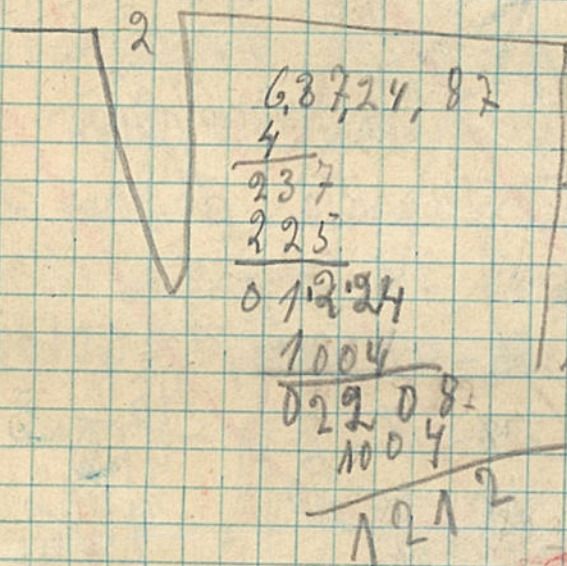 2
6,37,24,87
4
237
225
01.2.24
1004
02208
1004
1212